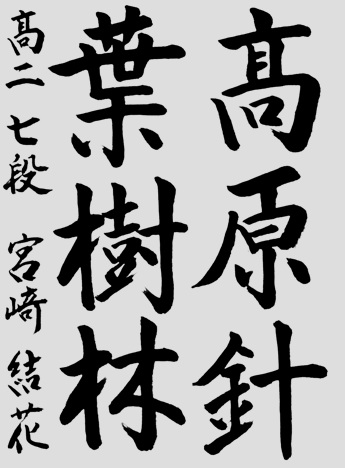 高原針
葉樹林
高二 七段 宮﨑 結花